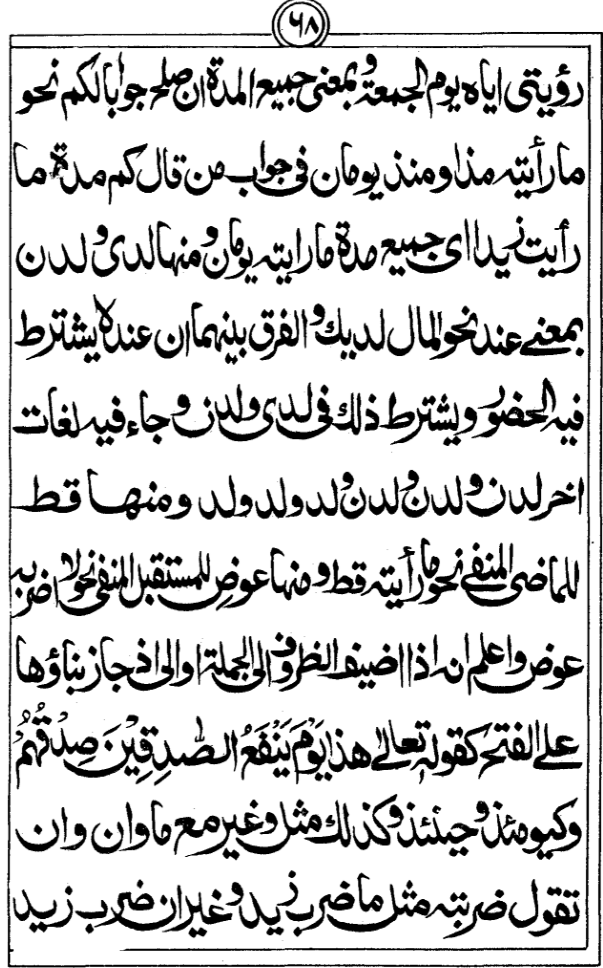 ٦٨
رؤيتى اياه يوم الجمعة و بمعنى جميع المدة ان صلح جوابا لكم نحو
ما رأيته مذ او منذ يومان فى جواب من قال كم مدة ما
رأيت زيدا اى جميع مدة ما رايته يومان و منها لدى و لدن
بمعنے عند نحو المال لديك و الفرق بينهما ان عند لا يشترط
فيه الحضور و يشترط ذلك فى لدى ولدن و جاء فيه لغات
اخر لدن و لدن و لدن و لد ولد ولد و منها قط
للماضى المنفے نحو ما رأيته قط و منها عوض للمستقبل المنفى نحو لا اضربه
عوض واعلم انه اذا اضيف الظروف الى الجملة او الى اذ جاز بناؤها
علے الفتح كقوله تعالے هذا يَوْمَ يَنْفَعُ الصّٰدِقِيْنَ صِدْقُهُمْ
وكيومئذ و حينئذ و كذلك مثل و غير مع ما وان و ان
تقول ضربته مثل ما ضرب زيد و غير ان ضرب زيد